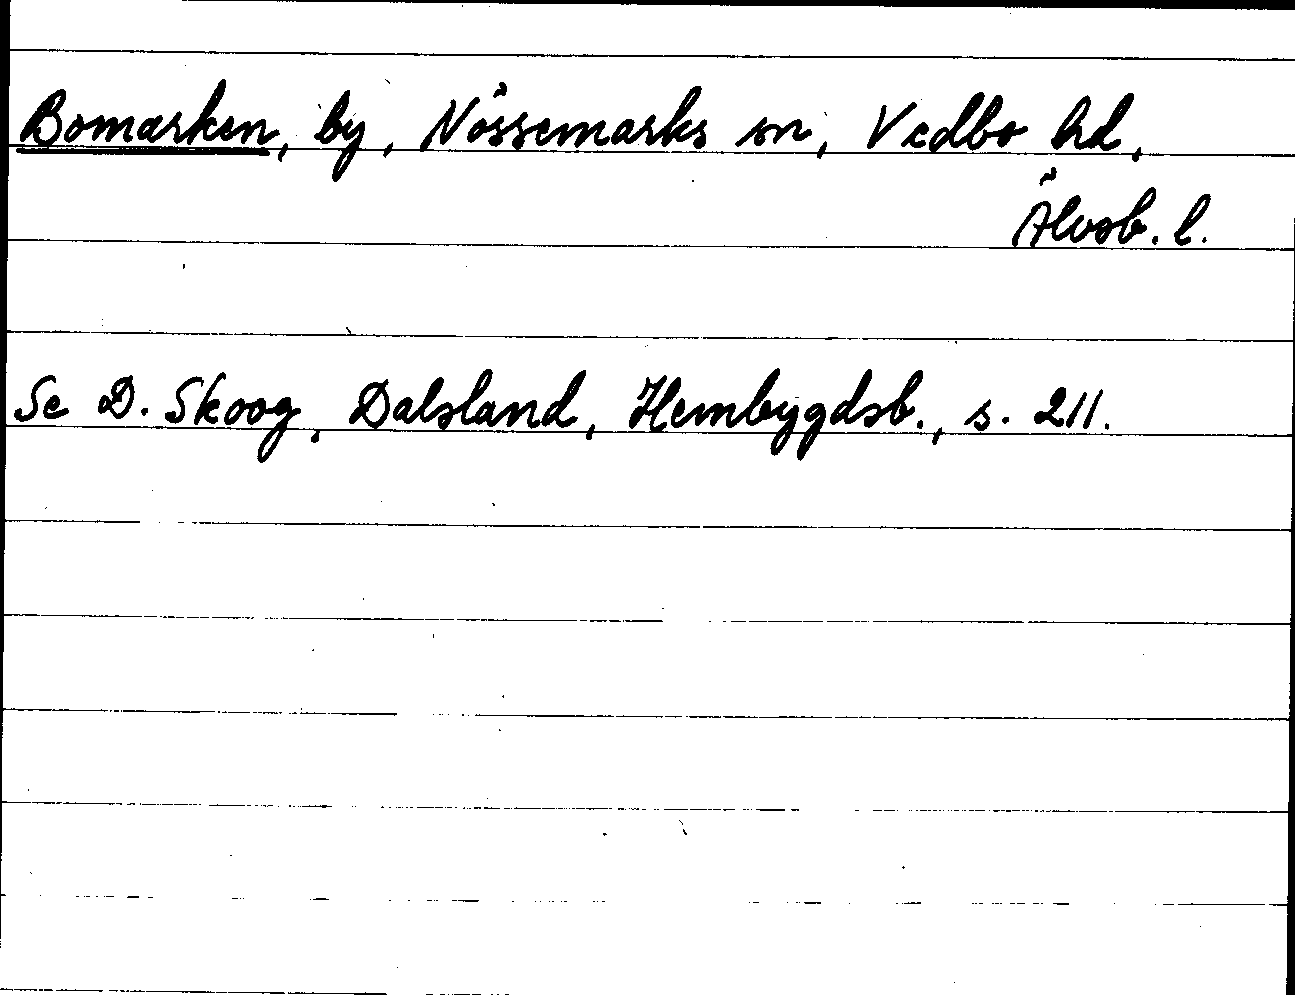 Bomarken, by, Nössemarks sn, Vedbo hd,
Älvsb. l.
Se D. Skoog, Dalsland, Hembygdsb., s. 211.